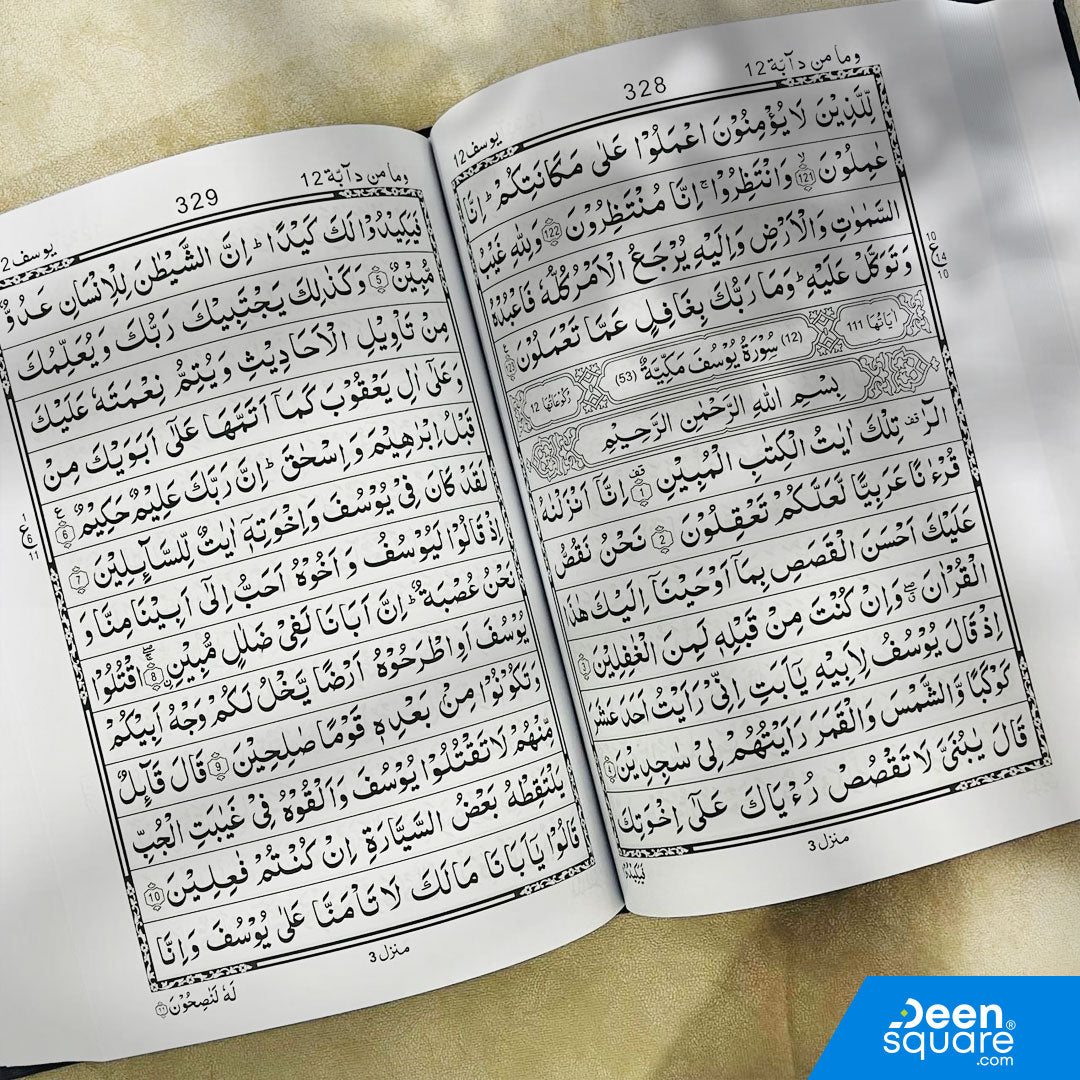 وما من دآبّة 12
328
يوسف 12
لِّلَّذِيْنَ لَا يُؤْمِنُوْنَ اعْمَلُوْا عَلٰى مَكَانَتِكُمْ ؕ اِنَّا
عٰمِلُوْنَ ﴿121﴾ۙ وَانْتَظِرُوْا ۚ اِنَّا مُنْتَظِرُوْنَ ﴿122﴾ وَلِلّٰهِ غَيْبُ
السَّمٰوٰتِ وَالْاَرْضِ وَاِلَيْهِ يُرْجَعُ الْاَمْرُ كُلُّهٗ فَاعْبُدْهُ
وَتَوَكَّلْ عَلَيْهِ ؕ وَمَا رَبُّكَ بِغَافِلٍ عَمَّا تَعْمَلُوْنَ ﴿123﴾
10
ع
14
10
اٰيَاتُهَا 111 (12) سُوْرَةُ يُوْسُفَ مَكِّيَّةٌ (53) رُكُوْعَاتُهَا 12
بِسْمِ اللّٰهِ الرَّحْمٰنِ الرَّحِيْمِ
الٓرٰ قف تِلْكَ اٰيٰتُ الْكِتٰبِ الْمُبِيْنِ ﴿1﴾ قف اِنَّاۤ اَنْزَلْنٰهُ
قُرْءٰنًا عَرَبِيًّا لَّعَلَّكُمْ تَعْقِلُوْنَ ﴿2﴾ نَحْنُ نَقُصُّ
عَلَيْكَ اَحْسَنَ الْقَصَصِ بِمَاۤ اَوْحَيْنَاۤ اِلَيْكَ هٰذَا
الْقُرْاٰنَ ۖ وَاِنْ كُنْتَ مِنْ قَبْلِهٖ لَمِنَ الْغٰفِلِيْنَ ﴿3﴾
اِذْ قَالَ يُوْسُفُ لِاَبِيْهِ يٰۤاَبَتِ اِنِّيْ رَاَيْتُ اَحَدَ عَشَرَ
كَوْكَبًا وَّالشَّمْسَ وَالْقَمَرَ رَاَيْتُهُمْ لِيْ سٰجِدِيْنَ ﴿4﴾
قَالَ يٰبُنَيَّ لَا تَقْصُصْ رُءْيَاكَ عَلٰۤى اِخْوَتِكَ
منزل 3
فَيَكِيْدُوْا
وما من دآبّة 12
329
يوسف 2
فَيَكِيْدُوْا لَكَ كَيْدًا ؕ اِنَّ الشَّيْطٰنَ لِلْاِنْسَانِ عَدُوٌّ
مُّبِيْنٌ ﴿5﴾ وَكَذٰلِكَ يَجْتَبِيْكَ رَبُّكَ وَيُعَلِّمُكَ
مِنْ تَاْوِيْلِ الْاَحَادِيْثِ وَيُتِمُّ نِعْمَتَهٗ عَلَيْكَ
وَعَلٰۤى اٰلِ يَعْقُوْبَ كَمَاۤ اَتَمَّهَا عَلٰۤى اَبَوَيْكَ مِنْ
قَبْلُ اِبْرٰهِيْمَ وَاِسْحٰقَ ؕ اِنَّ رَبَّكَ عَلِيْمٌ حَكِيْمٌ ﴿6﴾ ع
1
ع
6
11
لَقَدْ كَانَ فِيْ يُوْسُفَ وَاِخْوَتِهٖۤ اٰيٰتٌ لِّلسَّآئِلِيْنَ ﴿7﴾
اِذْ قَالُوْا لَيُوْسُفُ وَاَخُوْهُ اَحَبُّ اِلٰۤى اَبِيْنَا مِنَّا وَ
نَحْنُ عُصْبَةٌ ؕ اِنَّ اَبَانَا لَفِيْ ضَلٰلٍ مُّبِيْنِ ﴿8﴾ اقْتُلُوْا
يُوْسُفَ اَوِ اطْرَحُوْهُ اَرْضًا يَّخْلُ لَكُمْ وَجْهُ اَبِيْكُمْ
وَتَكُوْنُوْا مِنْۢ بَعْدِهٖ قَوْمًا صٰلِحِيْنَ ﴿9﴾ قَالَ قَآئِلٌ
مِّنْهُمْ لَا تَقْتُلُوْا يُوْسُفَ وَاَلْقُوْهُ فِيْ غَيٰبَتِ الْجُبِّ
يَلْتَقِطْهُ بَعْضُ السَّيَّارَةِ اِنْ كُنْتُمْ فٰعِلِيْنَ ﴿10﴾
قَالُوْا يٰۤاَبَانَا مَا لَكَ لَا تَاْمَنَّا عَلٰى يُوْسُفَ وَاِنَّا
منزل 3
لَهٗ لَنٰصِحُوْنَ ﴿١١﴾
Deen
square®
.com